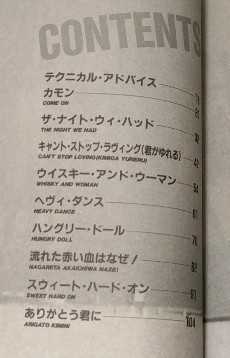 CONTENTS
テクニカル・アドバイス
カモン
COME ON
ザ・ナイト・ウィ・ハッド
THE NIGHT WE HAD
キャント・ストップ・ラヴィング(君がゆれる)
CAN'T STOP LOVING(KIMIGA YURERU)
42
ウイスキー・アンド・ウーマン
WHISKY AND WOMAN
54
ヘヴィ・ダンス
HEAVY DANCE
61
ハングリー・ドール
HUNGRY DOLL
70
流れた赤い血はなぜ!
NAGARETA AKAICHIWA NAZE!
82
スウィート・ハード・オン
SWEET HARD ON
91
ありがとう君に
ARIGATO KIMINI
104